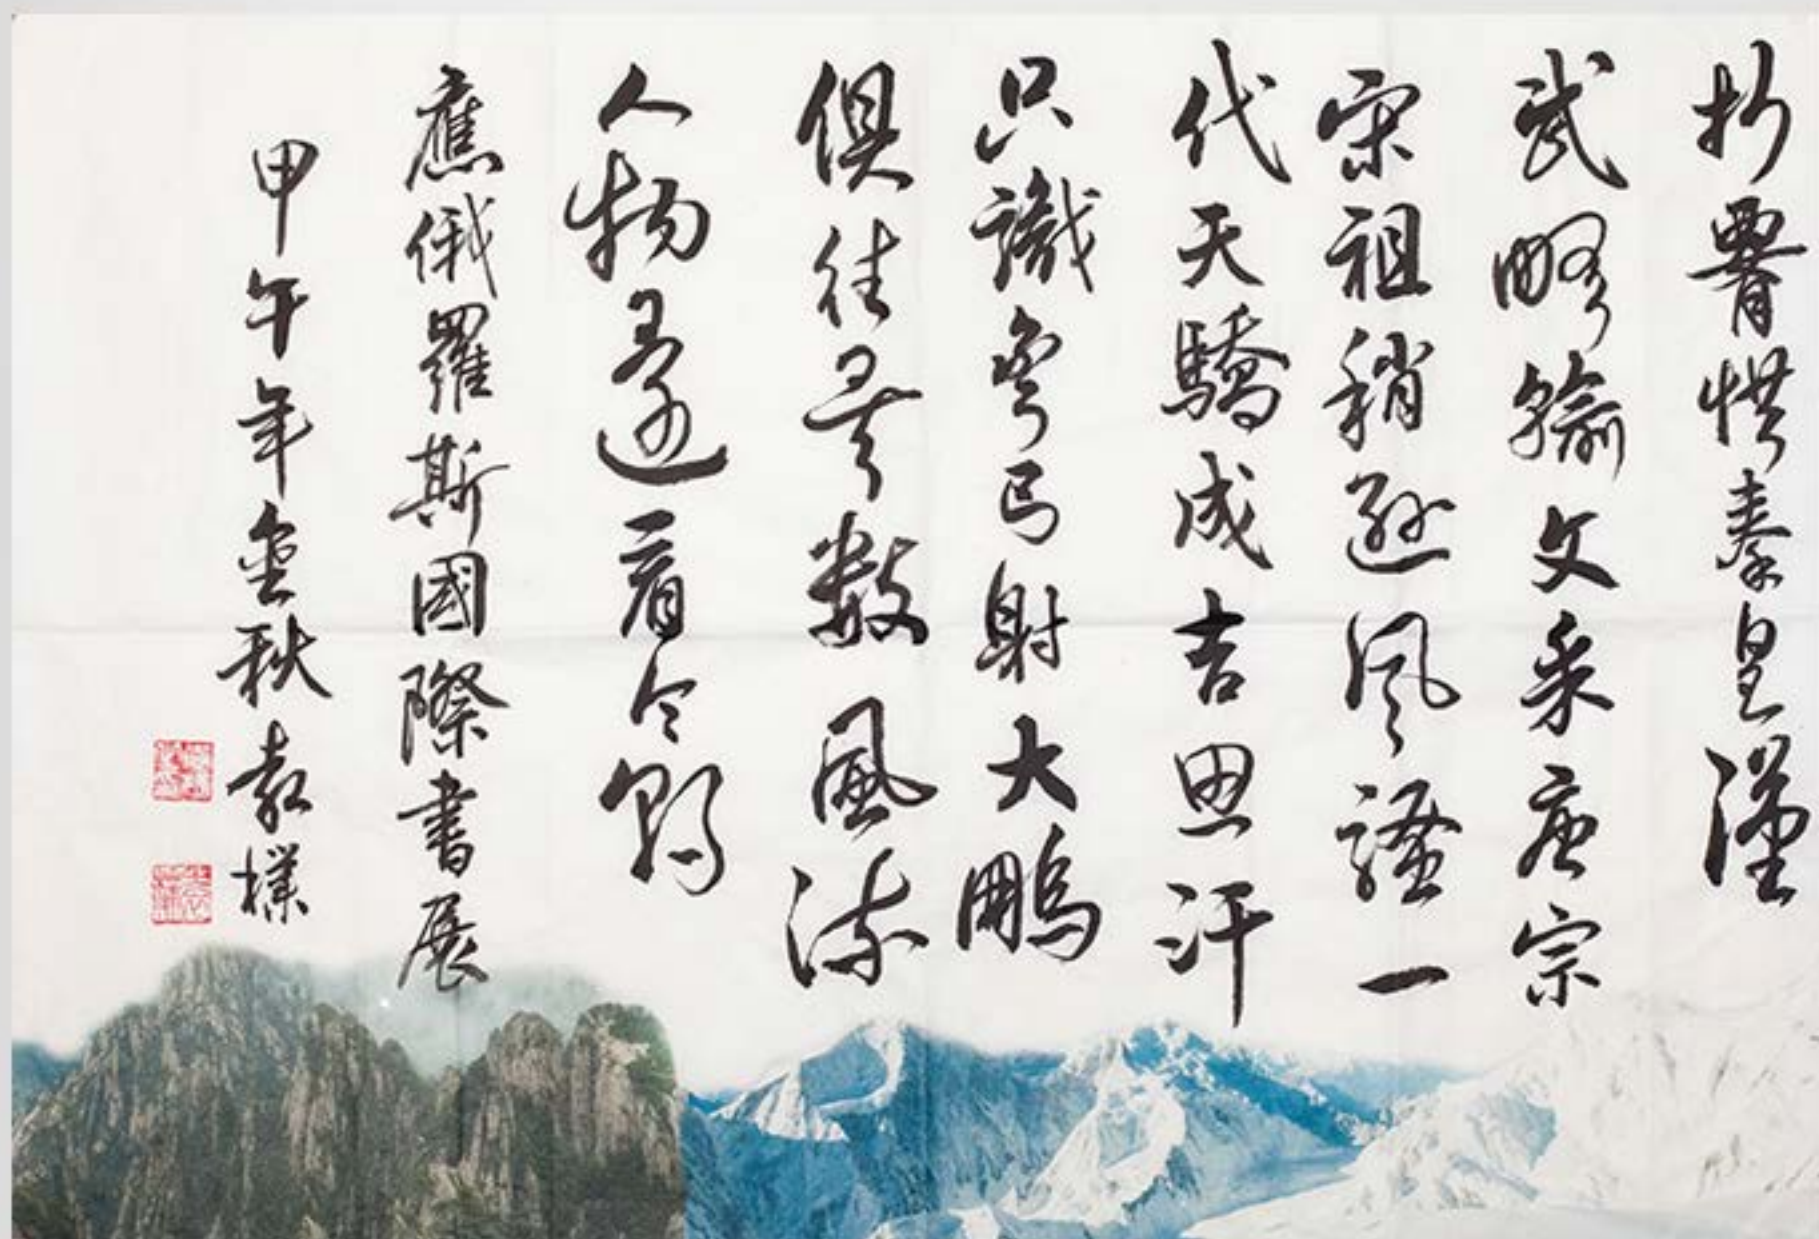 折腰惜秦皇漢
武略輸文采唐宗
宋祖稍遜風騷一
代天驕成吉思汗
只識彎弓射大鵬
俱往矣數風流
人物還看今朝
應俄羅斯國際書展
甲午年金秋樸